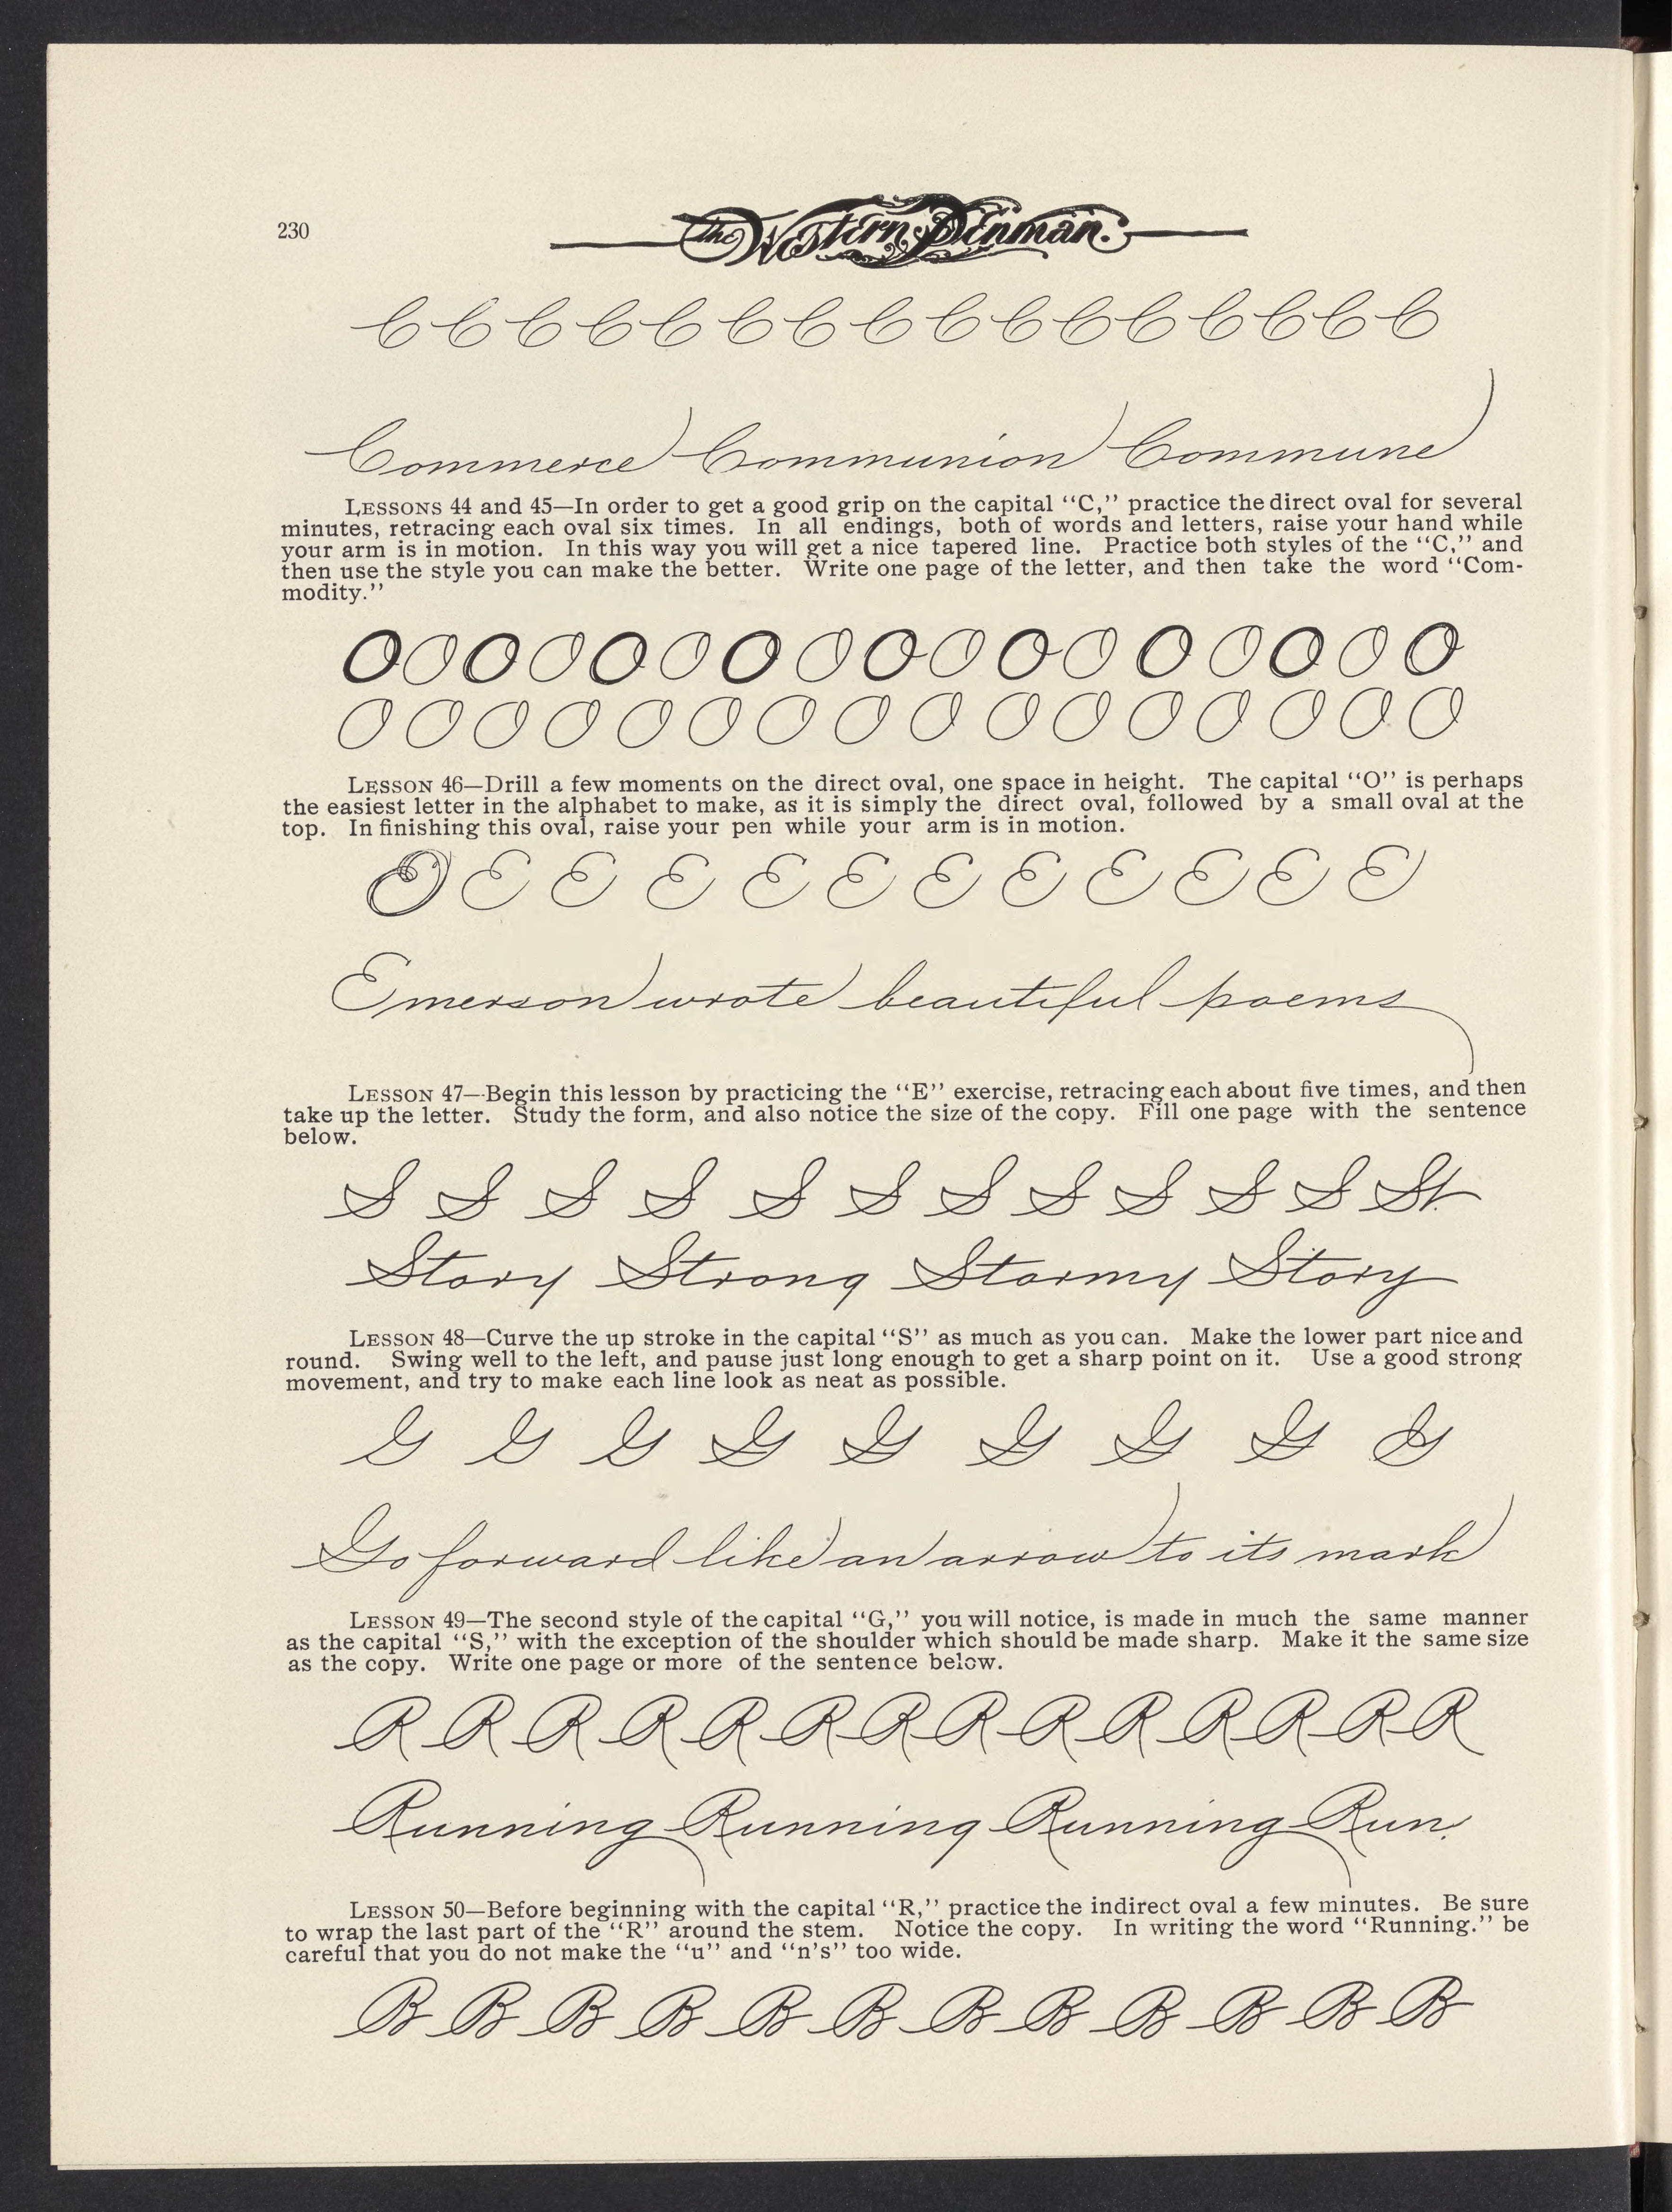 230
The Western Penman.
C C C C C C C C C C C C C C C C
Commerce Communion Commune
LESSONS 44 and 45—In order to get a good grip on the capital “C,” practice the direct oval for several
minutes, retracing each oval six times. In all endings, both of words and letters, raise your hand while
your arm is in motion. In this way you will get a nice tapered line. Practice both styles of the “C,” and
then use the style you can make the better. Write one page of the letter, and then take the word “Com-
modity.”
O O O O O O O O O O O O O O O O O
O O O O O O O O O O O O O O O O
LESSON 46—Drill a few moments on the direct oval, one space in height. The capital “O” is perhaps
the easiest letter in the alphabet to make, as it is simply the direct oval, followed by a small oval at the
top. In finishing this oval, raise your pen while your arm is in motion.
E E E E E E E E E E E E
Emerson wrote beautiful poems
LESSON 47—Begin this lesson by practicing the “E” exercise, retracing each about five times, and then
take up the letter. Study the form, and also notice the size of the copy. Fill one page with the sentence
below.
S S S S S S S S S S S St.
Story Strong Stormy Story
LESSON 48—Curve the up stroke in the capital “S” as much as you can. Make the lower part nice and
round. Swing well to the left, and pause just long enough to get a sharp point on it. Use a good strong
movement, and try to make each line look as neat as possible.
G G G G G G G G G
Go forward like an arrow to its mark
LESSON 49—The second style of the capital “G,” you will notice, is made in much the same manner
as the capital “S,” with the exception of the shoulder which should be made sharp. Make it the same size
as the copy. Write one page or more of the sentence below.
R R R R R R R R R R R R R R
Running Running Running Run.
LESSON 50—Before beginning with the capital “R,” practice the indirect oval a few minutes. Be sure
to wrap the last part of the “R” around the stem. Notice the copy. In writing the word “Running.” be
careful that you do not make the “u” and “n's” too wide.
B B B B B B B B B B B B